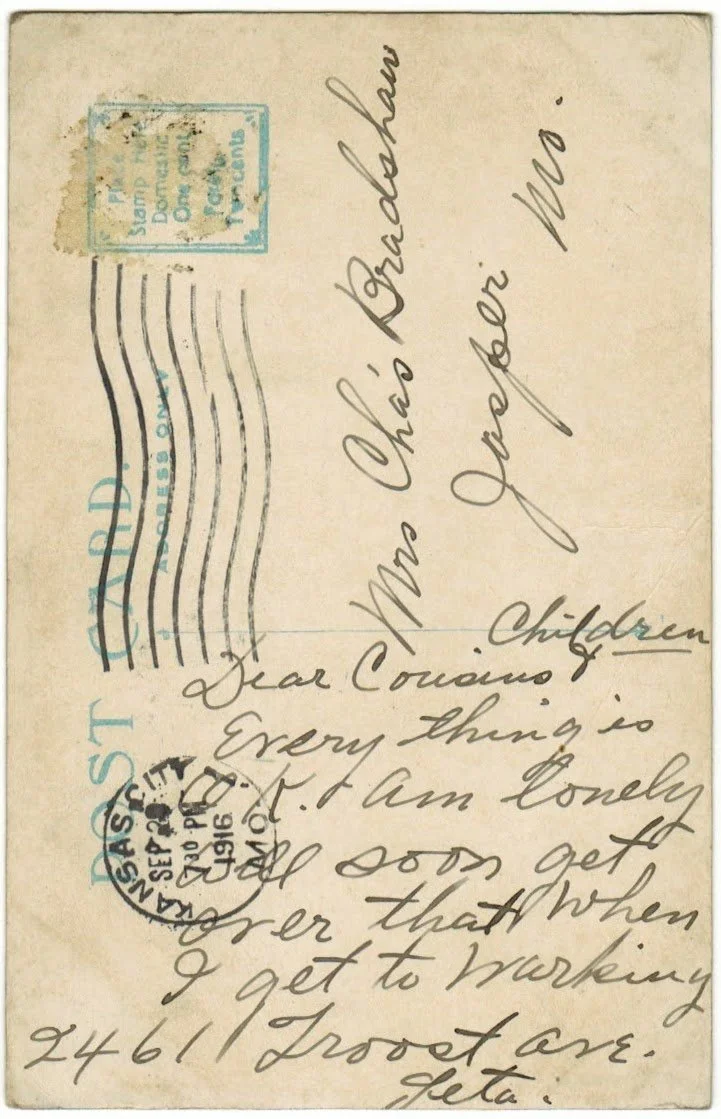 POST CARD.
ADDRESS ONLY
Place
Stamp Here
Domestic
One cent
Foreign
Two cents
KANSAS CITY
MO.
SEP 2
730 PM
1916
Mrs Chas Bradshaw
Jasper Mo.
Dear Cousins & Children
Every thing is
O.K. Am lonely
will soon get
over that When
I get to Working
2461 Troost Ave.